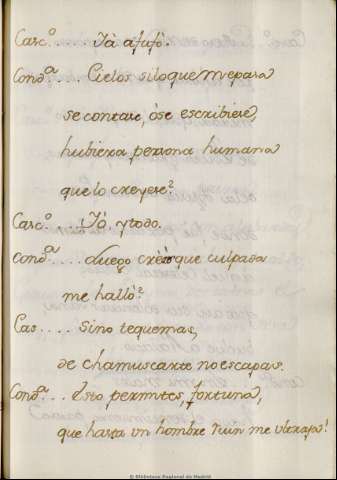 Casc.º Ià afufò.
Cond.ª .... Cielos siloque mepasa
se contare, òse escribiere,
hubiera persona humana
que lo creyese?
Casc.º .... Iò, ytodo.
Cond.ª ... Luego creèsque culpada
me hallò?
Cas .... Sino tequemas,
de chamuscarte no escapas.
Cond.ª .... Esto permites, fortuna,
que hasta un hombre ruin me ultraja!
© Biblioteca Regional de Madrid